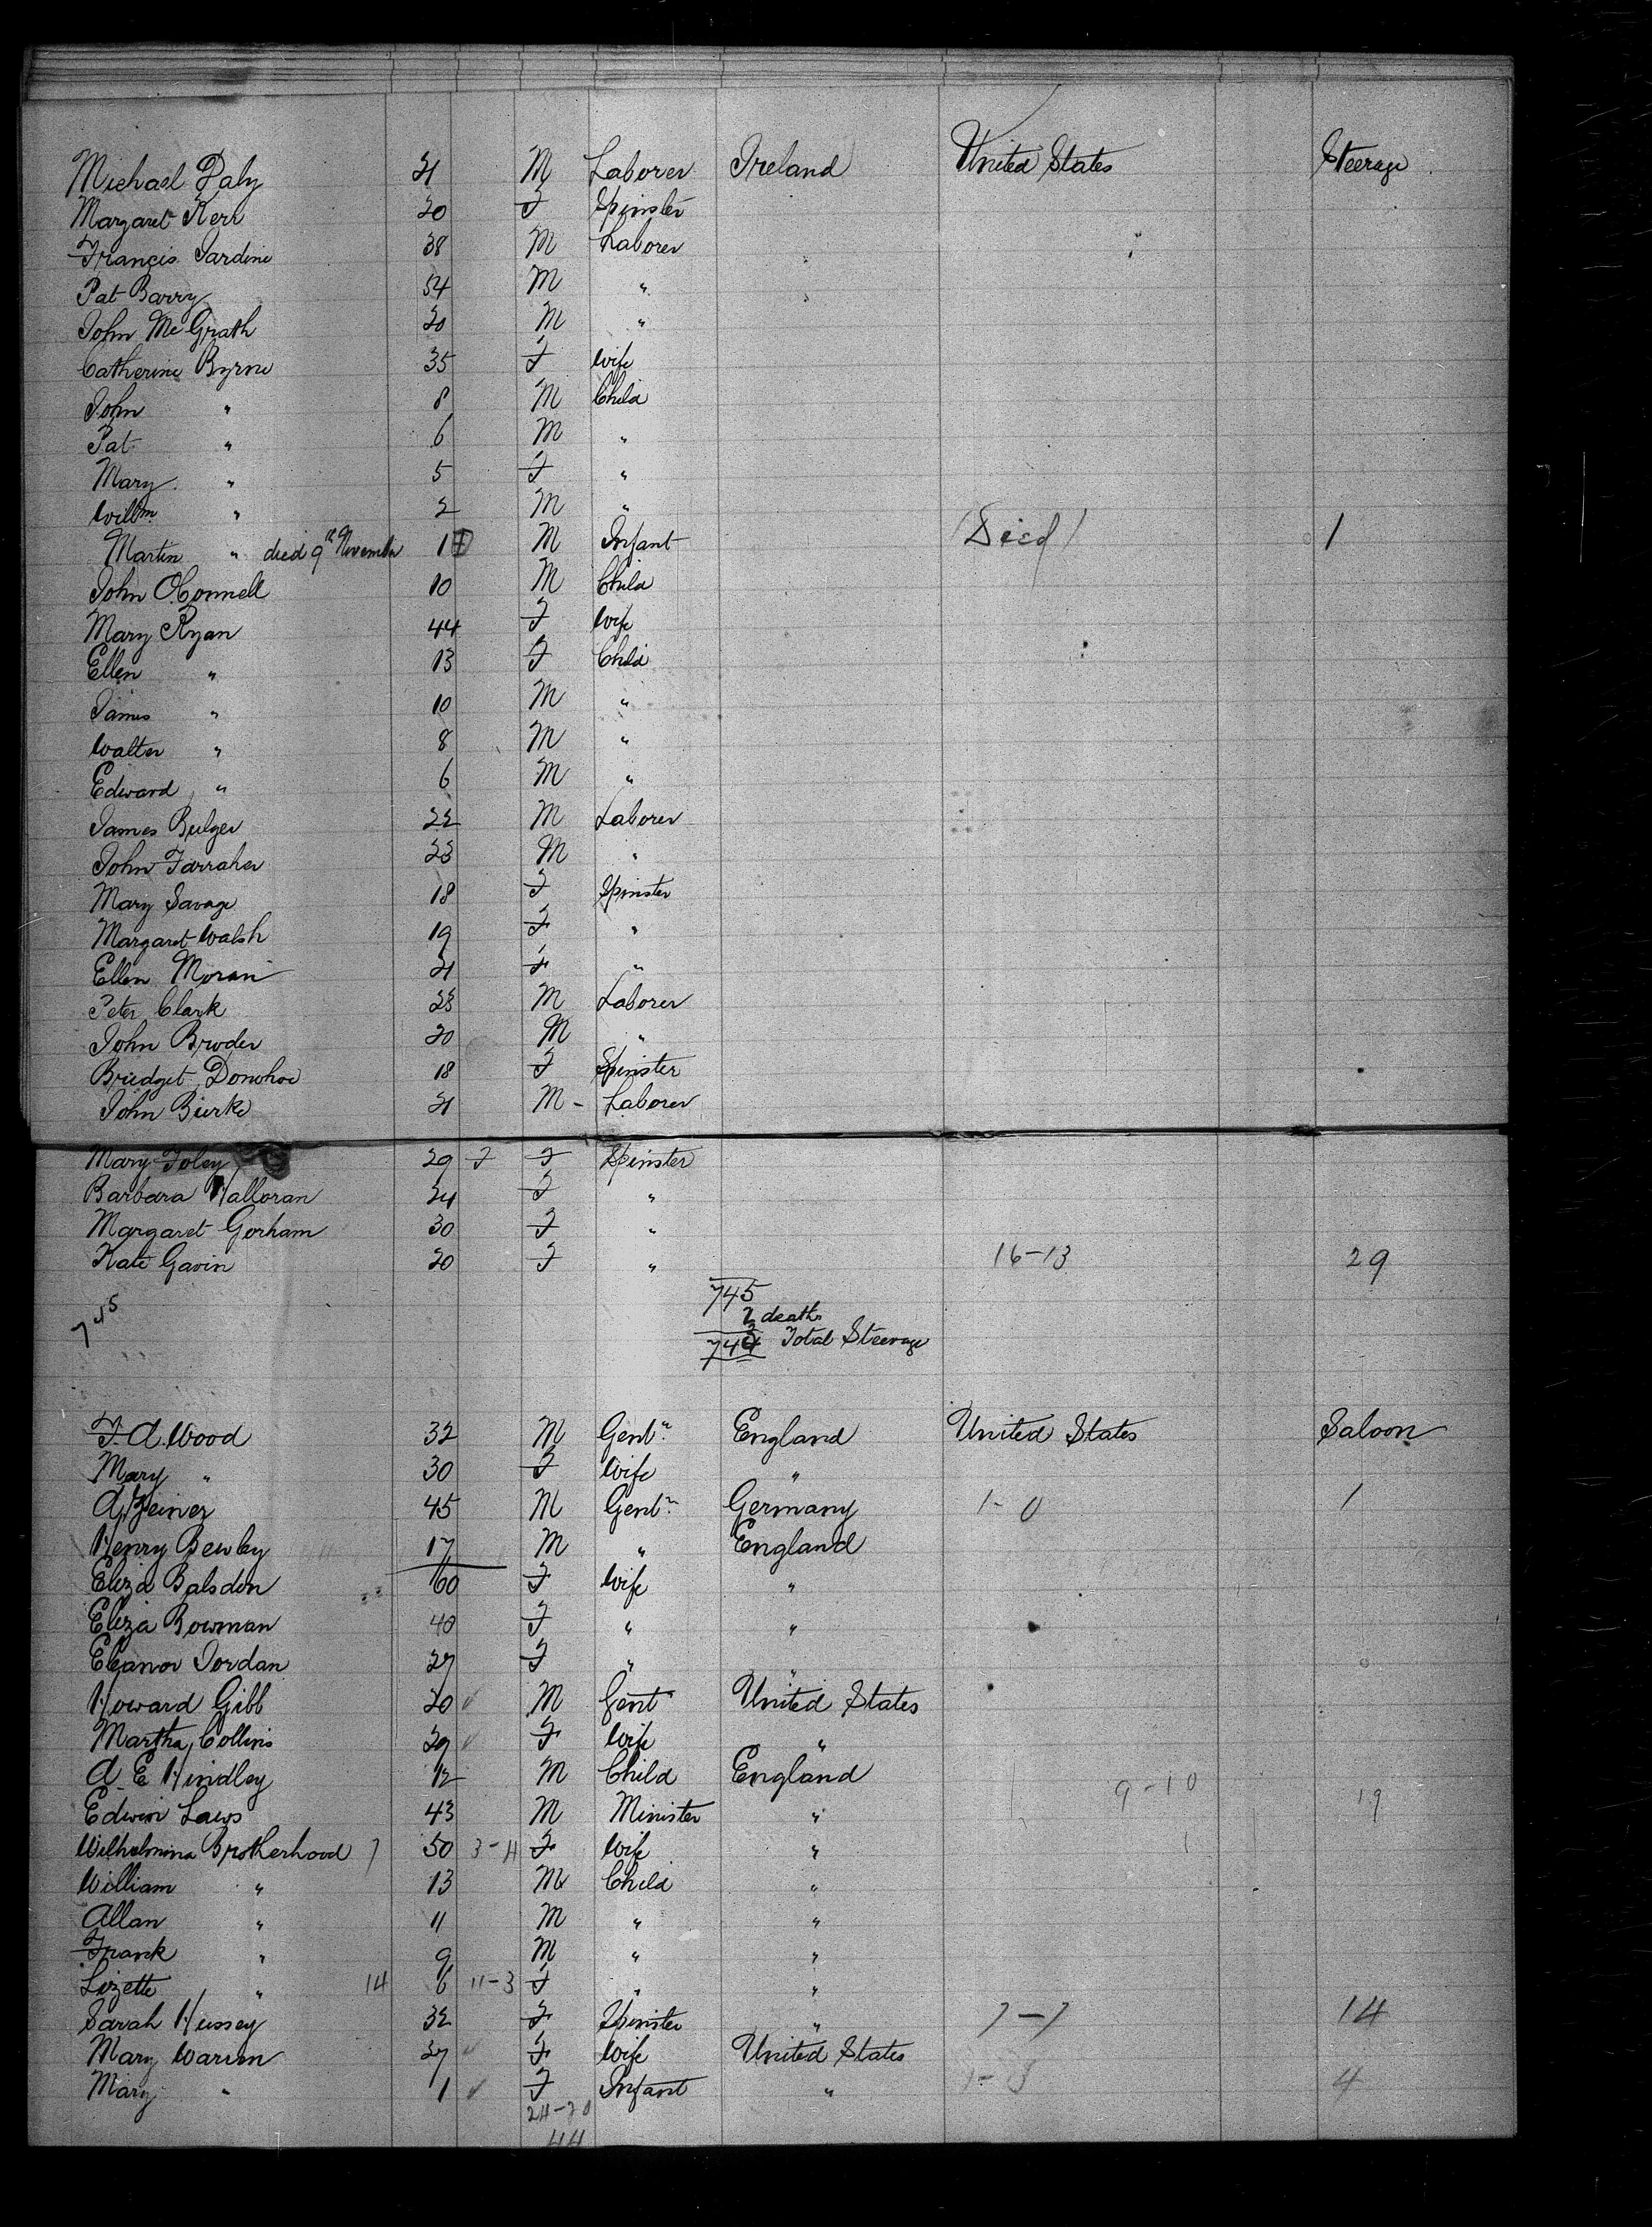 Michael Daly 21 M Laborer Ireland United States Steerage
Margaret Kerr 20 F Spinster
Francis Jardine 38 M Laborer "
Pat Barry 54 M "
John McGrath 20 M "
Catherine Byrne 35 F Wife
John " 8 M Child
Pat " 6 M "
Mary " 5 F "
Willm " 2 M "
Martin " died 9th November 1 M Infant Died 1
John O'Connell 10 M Child
Mary Ryan 44 F Wife
Ellen " 13 F Child
James " 10 M "
Walter " 8 M "
Edward " 6 M "
James Bulger 22 M Laborer
John Farraher 23 M "
Mary Savage 18 F Spinster
Margaret Walsh 19 F "
Ellen Moran 21 F "
Peter Clark 28 M Laborer
John Broder 20 M "
Bridget Donohoe 18 F Spinster
John Burke 21 M - Laborer
Mary Foley 29 F F Spinster
Barbara Halloran 24 F "
Margaret Gorham 30 F "
Kate Gavin 20 F " 16-13 29
745 745
2 deaths
743 Total Steerage
F. A. Wood 32 M Gentn England United States Saloon
Mary " 30 F Wife "
A. Zeiner 45 M Gentn Germany 1-0 1
Henry Bewley 17 M " England
Eliza Balsdon 60 F Wife "
Eliza Bowman 40 F " "
Eleanor Jordan 27 F " "
Howard Gibb 20 M Gent United States
Martha Collins 29 F Wife "
A. E. Hindley 12 M Child England 9-10 19
Edwin Laws 43 M Minister "
Wilhelmina Brotherhood 7 50 3-4 F Wife "
William " 13 M Child "
Allan " 11 M " "
Frank " 9 M " "
Lizette " 14 6 11-3 F " "
Sarah Hussey 32 F Spinster " 7-7 14
Mary Warren 37 F Wife United States
Mary " 1 F Infant " 1-3 4
24-20
44